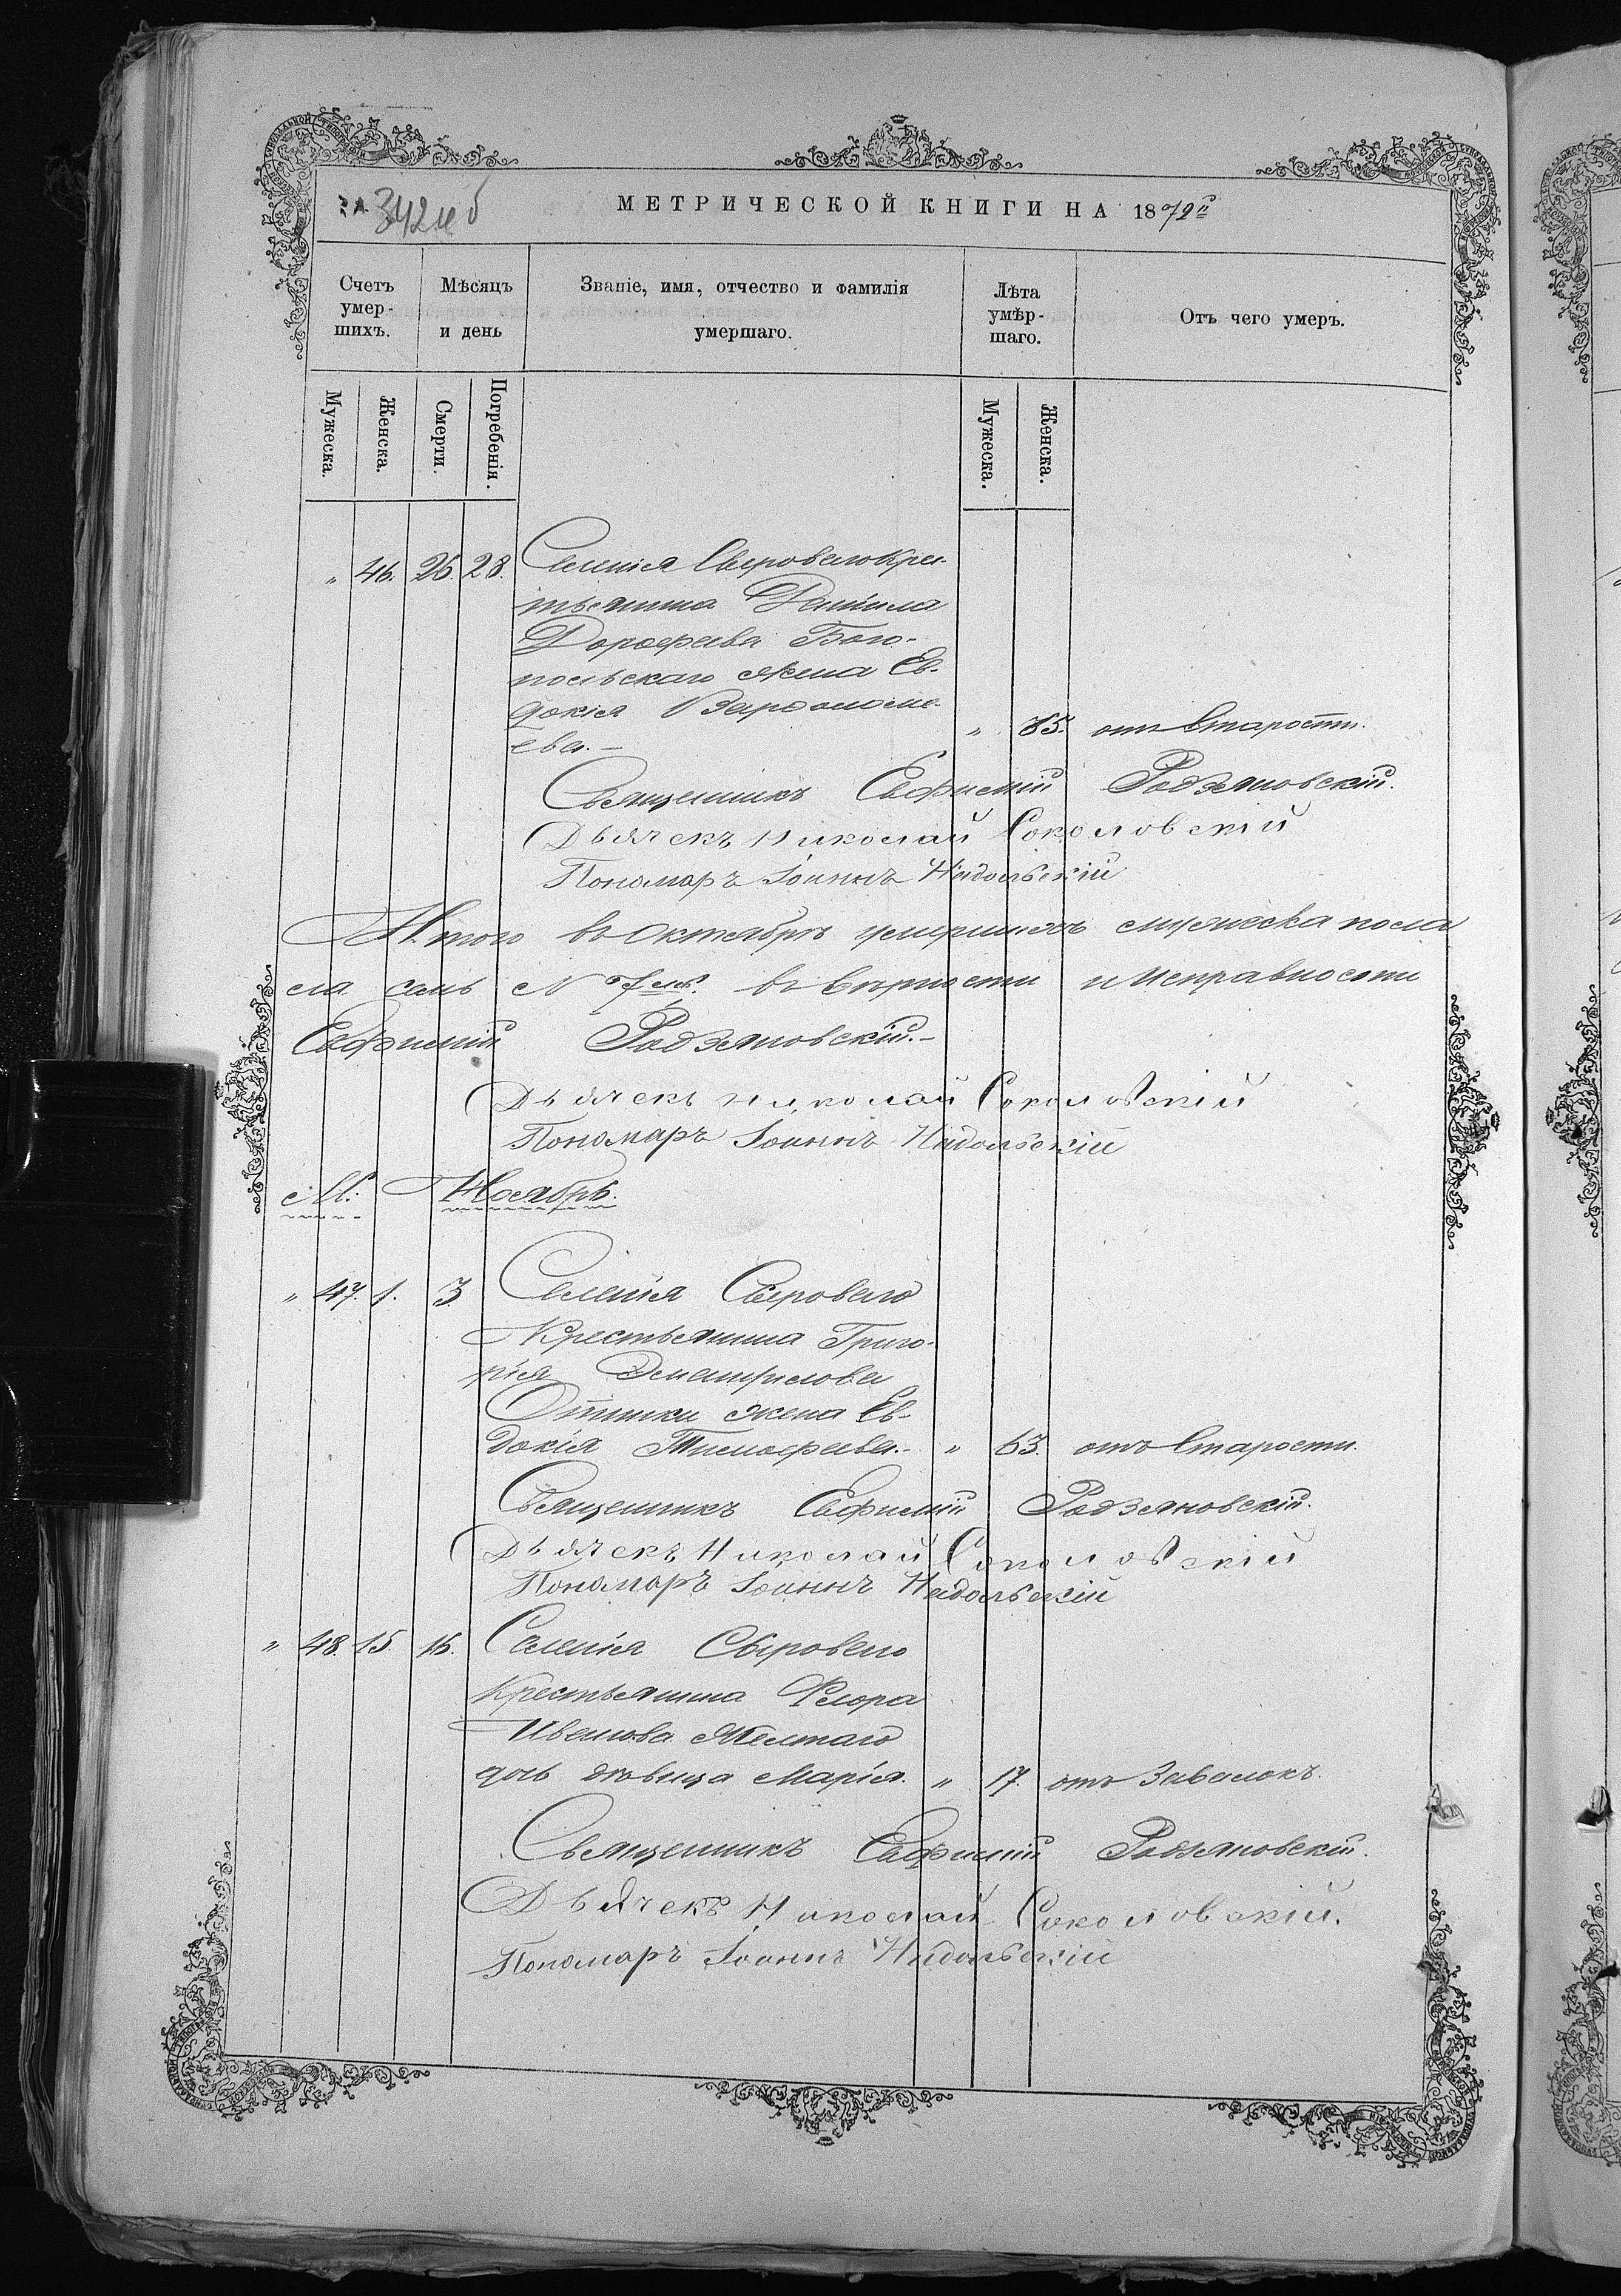 342 об
МЕТРИЧЕСКОЙ КНИГИ НА 1872й
Счетъ умер-шихъ.
Мѣсяцъ и день
Званіе, имя, отчество и фамилія умершаго.
Лѣта умѣр-шаго.
Отъ чего умеръ.
Мужеска.
Женска.
Смерти.
Погребенія.
Мужеска.
Женска.
" 46. 26. 28. Селенія Сыроваго Кре-
тьянина Даніила
Дорофеева Бого-
польскаго жена Ев-
докія Варфоломе-
ева. — " 85. отъ Старости.
Священникъ Евфимій Радзяновскій.
Дьячекъ Николай Соколовскій
Пономаръ Іоаннъ Надольскій
Итого въ Октябрѣ умершихъ мужеска пола
семь въ вѣрности и Исправности
Евфимій Радзяновскій. —
Дьячекъ Николай Соколовскій
Пономаръ Іоаннъ Надольскій
М: Ноябрь.
" 47. 1. 3. Селенія Сыроваго
Крестьянина Григо-
рія
жена Ев-
докія Тимофеева. — " 63. отъ Старости.
Священникъ Евфимій Радзяновскій.
Дьячекъ Николай Соколовскій
Пономаръ Іоаннъ Надольскій
" 48. 15. 16. Селенія Сыроваго
Крестьянина Флора
Иванова Желтаго
дочь дѣвица Марія. " 17. отъ Завалокъ.
Священникъ Евфимій Радзяновскій.
Дьячекъ Николай Соколовскій.
Пономаръ Іоаннъ Надольскій